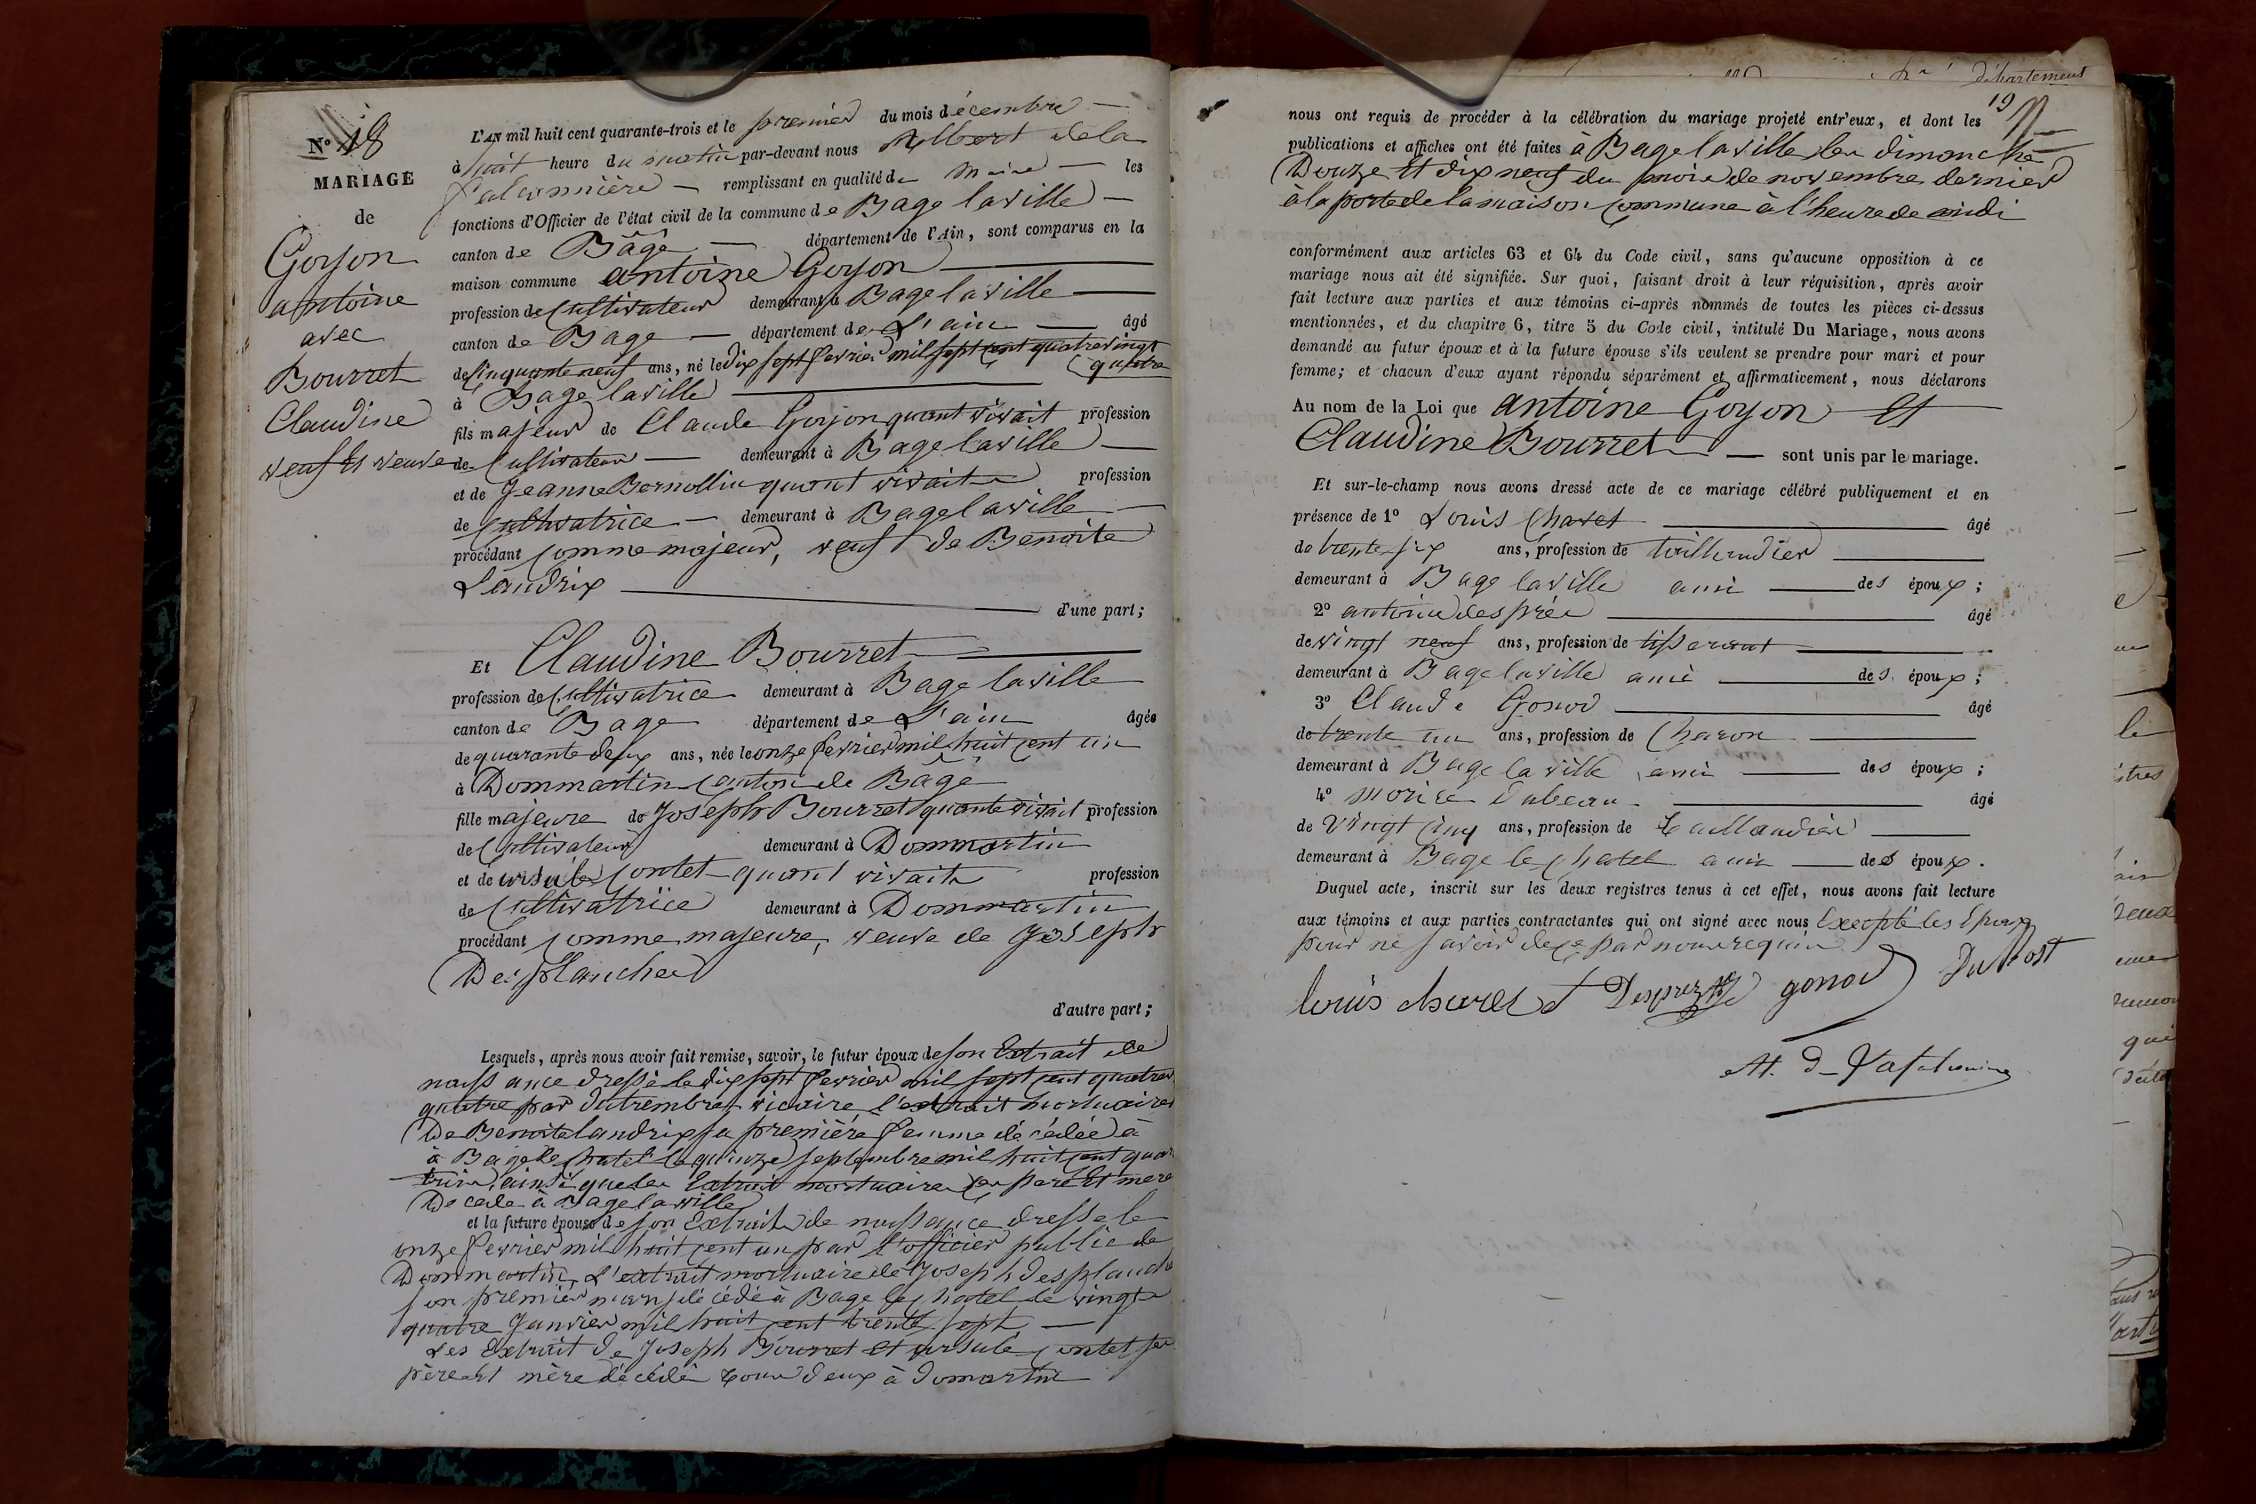 N° 18
MARIAGE
de
Goyon
antoine
avec
Bourret
Claudine
veuf Et veuve
L'AN mil huit cent quarante-trois et le premier du mois décembre
à huit heure du matin par-devant nous Albert dela
falconnière remplissant en qualité de Maire les
fonctions d'Officier de l'état civil de la commune de Bage laville
canton de Bâgê département de l'Ain, sont comparus en la
maison commune antoine Goyon
profession de Cultivateur demeurant à Bage laville
canton de Bage département de L'ain âgé
de Cinquante neuf ans, né le dix sept fevrier mil sept cent quatrevingt
quatre
à Bage laville
fils majeur de Claude Goyon quant vivait profession
de Cultivateur demeurant à Bage laville
et de Jeanne Bernollin quant vivait profession
de Cultivatrice demeurant à Bage laville
procédant Comme majeur, veuf de Benoite
Landrix
d'une part;
Et Claudine Bourret
profession de Cultivatrice demeurant à Bage laville
canton de Bage département de L'ain âgée
de quarante deux ans, née le onze fevrier mil huit cent un
à Dommartin Canton de Bâgê
fille majeure de Joseph Bourret quant vivait profession
de Cultivateur demeurant à Dommartin
et de ursule Contet quant vivait profession
de Cultivatrice demeurant à Dommartin
procédant Comme majeure, veuve de Joseph
Desplanches
d'autre part;
Lesquels, après nous avoir fait remise, savoir, le futur époux de son Extrait de
naissance dressé le dix sept fevrier mil sept cent quatrev
quatre par dutrembley vicaire, l'extrait mortuaire
De Benoite landrix sa première femme décédée à
à Bage le Chatel le quinze septembre mil huit cent quar
trois, ainsi que les Extrait mortuaire des pere Et mere
De cede à Bage la ville
et la future épouse de son Extrait de naissance dresse le
onze fevrier mil huit cent un par l'officier public de
Dommartin, L'extrait mortuaire de Joseph desplanche
son premier mari décédé à Bage le Chatel le vingt
quatre Janvier mil huit cent trente sept
Les Extrait de Joseph Bourret Et ursule Contet ses
père Et mère décédé tous deux à domartin
département
19
nous ont requis de procéder à la célébration du mariage projeté entr'eux, et dont les
publications et affiches ont été faites à Bage laville les dimanche
Douze Et dix neuf du mois de novembre dernier
à la porte de la maison Commune à l'heure de midi
conformément aux articles 63 et 64 du Code civil, sans qu'aucune opposition à ce
mariage nous ait été signifiée. Sur quoi, faisant droit à leur réquisition, après avoir
fait lecture aux parties et aux témoins ci-après nommés de toutes les pièces ci-dessus
mentionnées, et du chapitre 6, titre 5 du Code civil, intitulé Du Mariage, nous avons
demandé au futur époux et à la future épouse s'ils veulent se prendre pour mari et pour
femme; et chacun d'eux ayant répondu séparément et affirmativement, nous déclarons
Au nom de la Loi que antoine Goyon Et
Claudine Bourret sont unis par le mariage.
Et sur-le-champ nous avons dressé acte de ce mariage célébré publiquement et en
présence de 1° Louis Chavet âgé
de trente six ans, profession de taillandier
demeurant à Bage laville ami des époux;
2° antoine desprée âgé
de vingt neuf ans, profession de tisserant
demeurant à Bage laville ami des époux;
3° Claude Gonod âgé
de trente un ans, profession de Charon
demeurant à Bage la ville ami des époux;
4° morice dubeau âgé
de vingt cinq ans, profession de taillandier
demeurant à Bage le Chatel ami des époux.
Duquel acte, inscrit sur les deux registres tenus à cet effet, nous avons fait lecture
aux témoins et aux parties contractantes qui ont signé avec nous Excepté les Epoux
pour ne savoir de ce par nous requis
louis chavet Desprez gonod Dubost